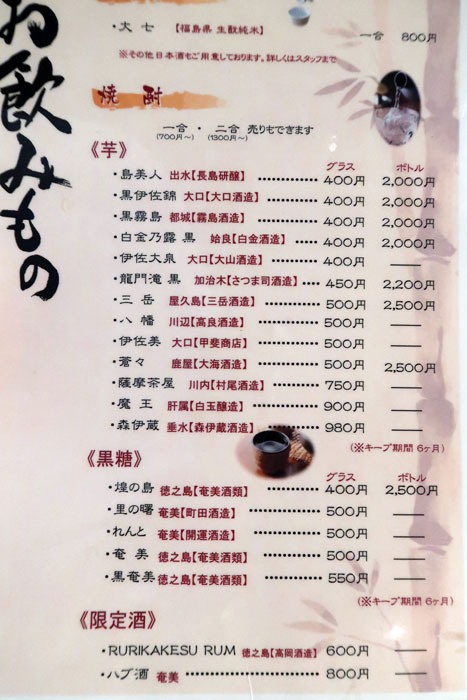 お飲みもの
・大七 【福島県 生酛純米】 一合 800円
※その他日本酒もご用意しております。詳しくはスタッフまで
焼酎
一合・二合 売りもできます
(700円〜) (1300円〜)
《芋》
グラス ボトル
・島美人 出水【長島研醸】 400円 2,000円
・黒伊佐錦 大口【大口酒造】 400円 2,000円
・黒霧島 都城【霧島酒造】 400円 2,000円
・白金乃露 黒 姶良【白金酒造】 400円 2,000円
・伊佐大泉 大口【大山酒造】 400円 ――
・龍門滝 黒 加治木【さつま司酒造】 450円 2,200円
・三岳 屋久島【三岳酒造】 500円 2,500円
・八幡 川辺【高良酒造】 500円 ――
・伊佐美 大口【甲斐商店】 500円 ――
・蒼々 鹿屋【大海酒造】 500円 2,500円
・薩摩茶屋 川内【村尾酒造】 750円 ――
・魔王 肝属【白玉醸造】 900円 ――
・森伊蔵 垂水【森伊蔵酒造】 980円 ――
(※キープ期間 6ヶ月)
《黒糖》
グラス ボトル
・煌の島 徳之島【奄美酒類】 400円 2,500円
・里の曙 奄美【町田酒造】 500円 ――
・れんと 奄美【開運酒造】 500円 ――
・奄美 徳之島【奄美酒類】 500円 ――
・黒奄美 徳之島【奄美酒類】 550円 ――
(※キープ期間 6ヶ月)
《限定酒》
・RURIKAKESU RUM 徳之島【高岡酒造】 600円 ――
・ハブ酒 奄美 800円 ――